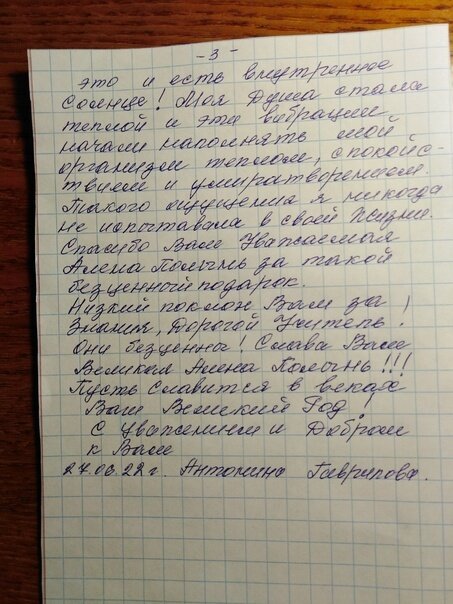 - 3 -
это и есть внутреннее
Солнце! Моя Душа стала
теплой и эта вибрации
начали наполнять мой
организм теплом, спокойс-
твием и умиратворением.
Такого ощущения я никогда
не испытавала в своей Жизни.
Спасибо Вам Уважаемая
Алена Полынь за такой
безценный подарок.
Низкий поклон Вам за
Знания, Дорогой Учитель!
Они безценны! Слава Вам
Великая Алена Полынь!!!
Пусть славится в веках
Ваш Великий Род!
С Уважением и Добром
к Вам
27.06.22г. Антонина Гаврилова.